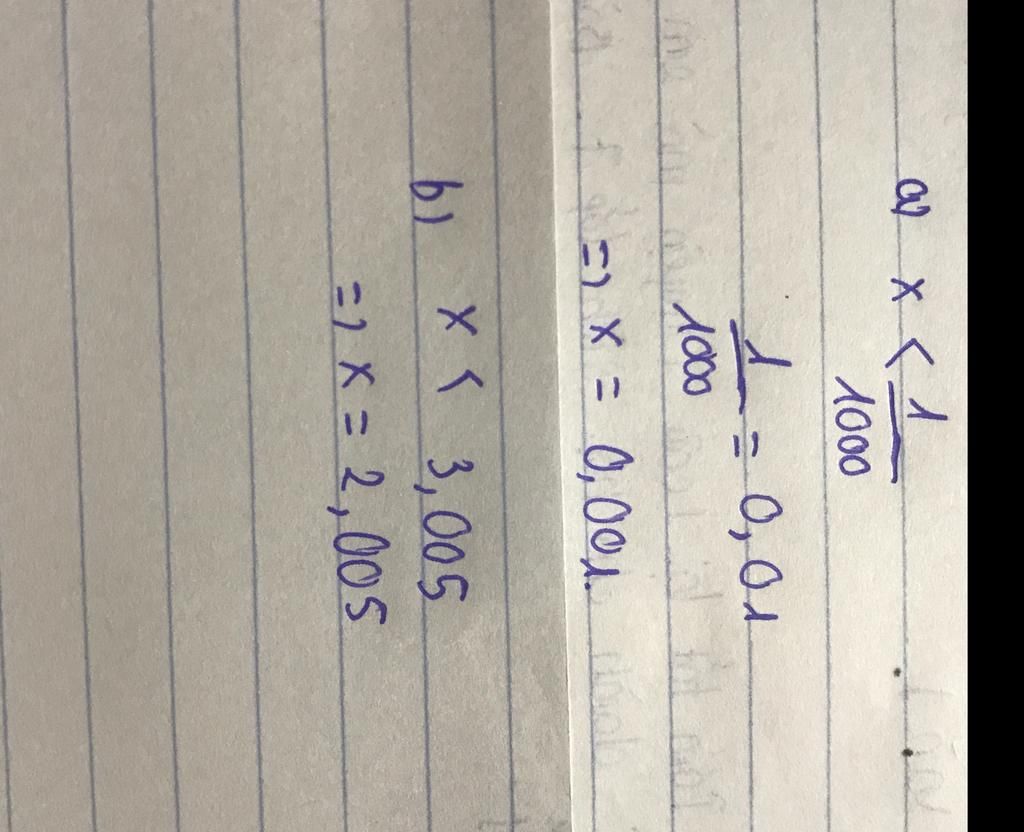 a) x < 1/1000
1/1000 = 0,01
=> x = 0,001.
b) x < 3,005
=> x = 2,005